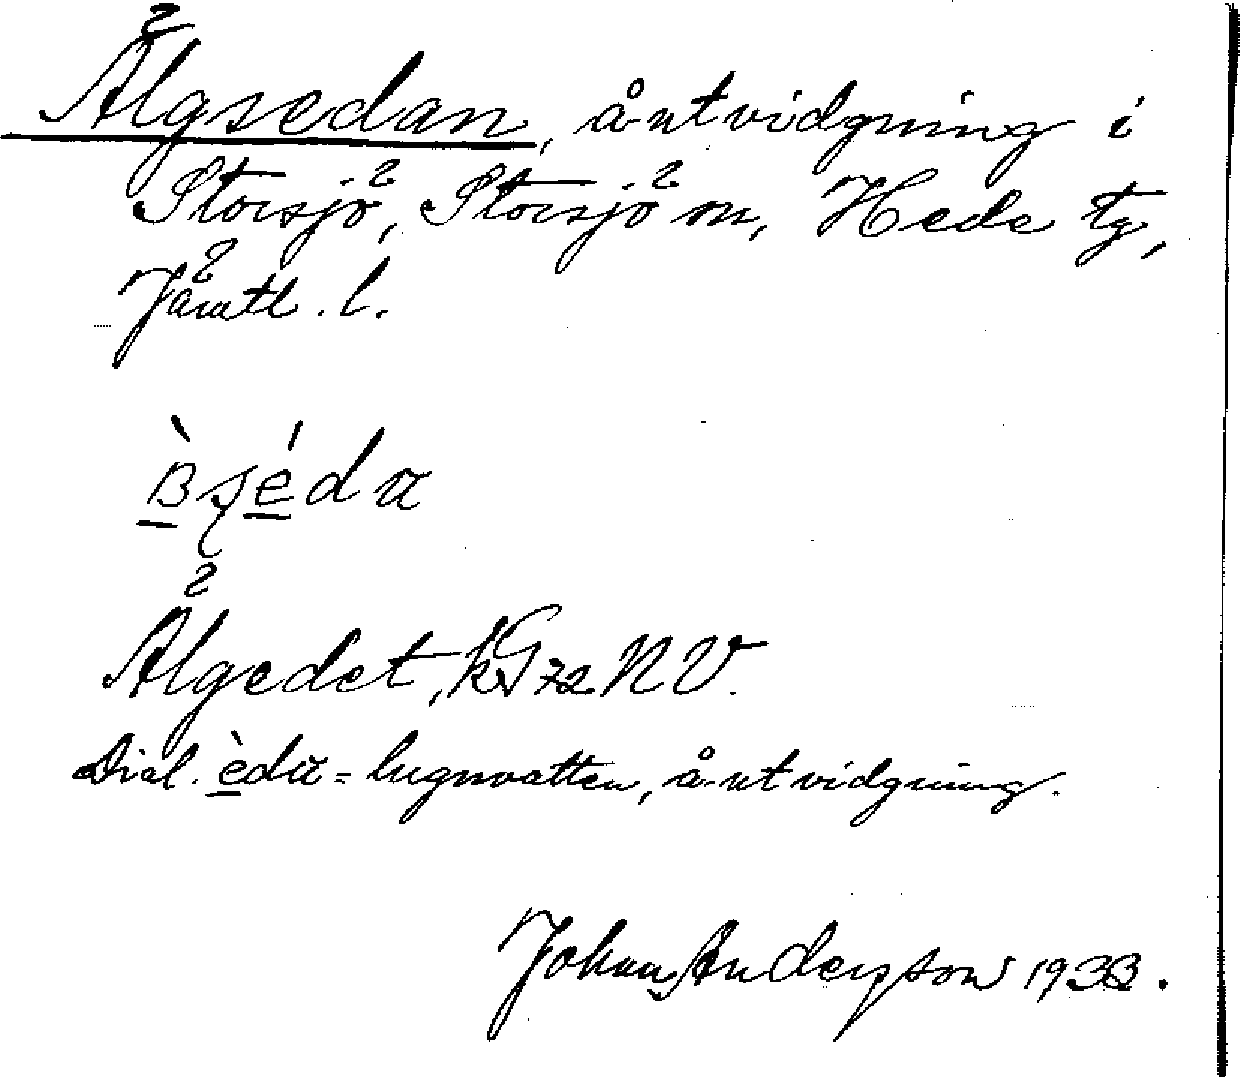 Älgsedan, åutvidgning i
Storsjö, Storsjö sn, Hede tg,
Jämtl. l.
Älgedet, kG72NV.
Dial. = lugnvatten, åutvidgning.
Johan Anderzson 1933.